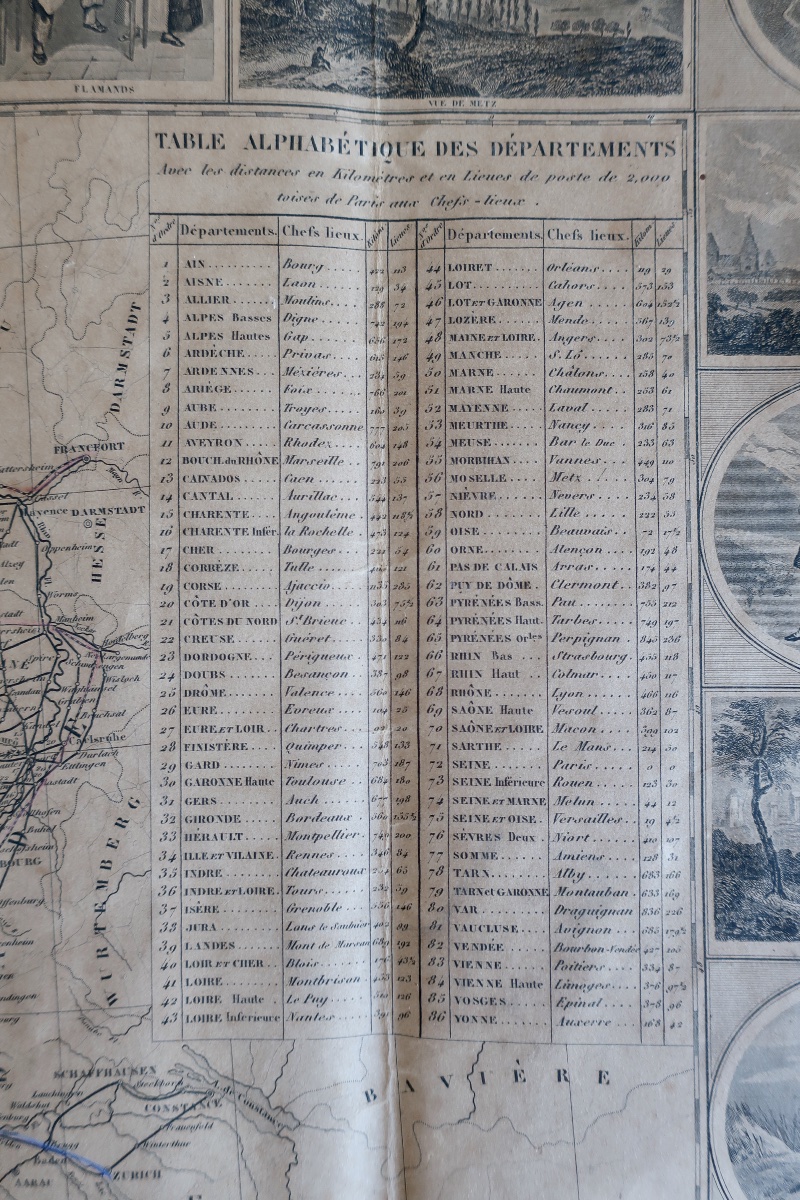 FLAMANDS
VUE DE METZ
TABLE ALPHABÉTIQUE DES DÉPARTEMENTS
Avec les distances en Kilomètres et en Lieues de poste de 2,000
toises de Paris aux Chefs-lieux.
Nos d'Ordre Départements. Chefs lieux. Kilom. Lieues
1 AIN Bourg 422 113
2 AISNE Laon 129 34
3 ALLIER Moulins 288 72
4 ALPES Basses Digne 742 194
5 ALPES Hautes Gap 656 172
6 ARDÈCHE Privas 146
7 ARDENNES Mézières 234 59
8 ARIÈGE Foix 766 201
9 AUBE Troyes 160 39
10 AUDE Carcassonne 777 205
11 AVEYRON Rhodez 604 148
12 BOUCH. du RHÔNE Marseille 791 206
13 CALVADOS Caen 223 55
14 CANTAL Aurillac 544 137
15 CHARENTE Angoulême 442
16 CHARENTE Infér. la Rochelle 473 124
17 CHER Bourges 221 54
18 CORRÈZE Tulle 121
19 CORSE Ajaccio 1135 285
20 CÔTE D'OR Dijon 303 75½
21 CÔTES DU NORD St Brieuc 434 116
22 CREUSE Guéret 330 84
23 DORDOGNE Périgueux 471 122
24 DOUBS Besançon 387 98
25 DRÔME Valence 560 146
26 EURE Evreux 104 25
27 EURE ET LOIR Chartres 92 20
28 FINISTÈRE Quimper 548 133
29 GARD Nîmes 703 187
30 GARONNE Haute Toulouse 684 180
31 GERS Auch 677 198
32 GIRONDE Bordeaux 560 155½
33 HÉRAULT Montpellier 749 200
34 ILLE ET VILAINE Rennes 346 84
35 INDRE Chateauroux 65
36 INDRE ET LOIRE Tours 232 59
37 ISÈRE Grenoble 556 146
38 JURA Lons le Saulnier 402 99
39 LANDES Mont de Marsan 689 192
40 LOIR ET CHER Blois 176 43½
41 LOIRE Montbrison 455 123
42 LOIRE Haute Le Puy 126
43 LOIRE Inférieure Nantes 391 96
Nos d'Ordre Départements. Chefs lieux. Kilom. Lieues
44 LOIRET Orléans 119 29
45 LOT Cahors 573 153
46 LOT ET GARONNE Agen 604 152½
47 LOZÈRE Mende 567 139
48 MAINE ET LOIRE Angers 302 73½
49 MANCHE S. Lô 285 70
50 MARNE Châlons 158 40
51 MARNE Haute Chaumont 253 61
52 MAYENNE Laval 283 71
53 MEURTHE Nancy 316 85
54 MEUSE Bar le Duc 233 63
55 MORBIHAN Vannes 449 110
56 MOSELLE Metz 304 79
57 NIÈVRE Nevers 234 58
58 NORD Lille 222 55
59 OISE Beauvais 72 17½
60 ORNE Alençon 192 48
61 PAS DE CALAIS Arras 174 44
62 PUY DE DÔME Clermont 382 97
63 PYRÉNÉES Bass. Pau 755 212
64 PYRÉNÉES Haut. Tarbes 749 197
65 PYRÉNÉES Orles Perpignan 845 236
66 RHIN Bas Strasbourg 455 118
67 RHIN Haut Colmar 450 117
68 RHÔNE Lyon 466 116
69 SAÔNE Haute Vesoul 362 87
70 SAÔNE ET LOIRE Macon 399 102
71 SARTHE Le Mans 214 50
72 SEINE Paris 0 0
73 SEINE Inférieure Rouen 123 30
74 SEINE ET MARNE Melun 44 12
75 SEINE ET OISE Versailles 19 4½
76 SÈVRES Deux Niort 410 107
77 SOMME Amiens 128 31
78 TARN Alby 683 166
79 TARN et GARONNE Montauban 633 169
80 VAR Draguignan 836 226
81 VAUCLUSE Avignon 685 179½
82 VENDÉE Bourbon-Vendée 427 105
83 VIENNE Poitiers 334 87
84 VIENNE Haute Limoges 376 97½
85 VOSGES Epinal 378 96
86 YONNE Auxerre 168 42
DARMSTADT
FRANCFORT
Mayence DARMSTADT
HESSE
Oppenheim
Worms
Manheim
Heidelberg
Wisloch
Bruchsal
Carlsruhe
Durlach
Ettingen
WURTEMBERG
SCHAFFHAUSEN
Stockborn
CONSTANCE
L. de Constance
Frauenfeld
Winterthur
Baden
ZURICH
AARAU
BAVIÈRE